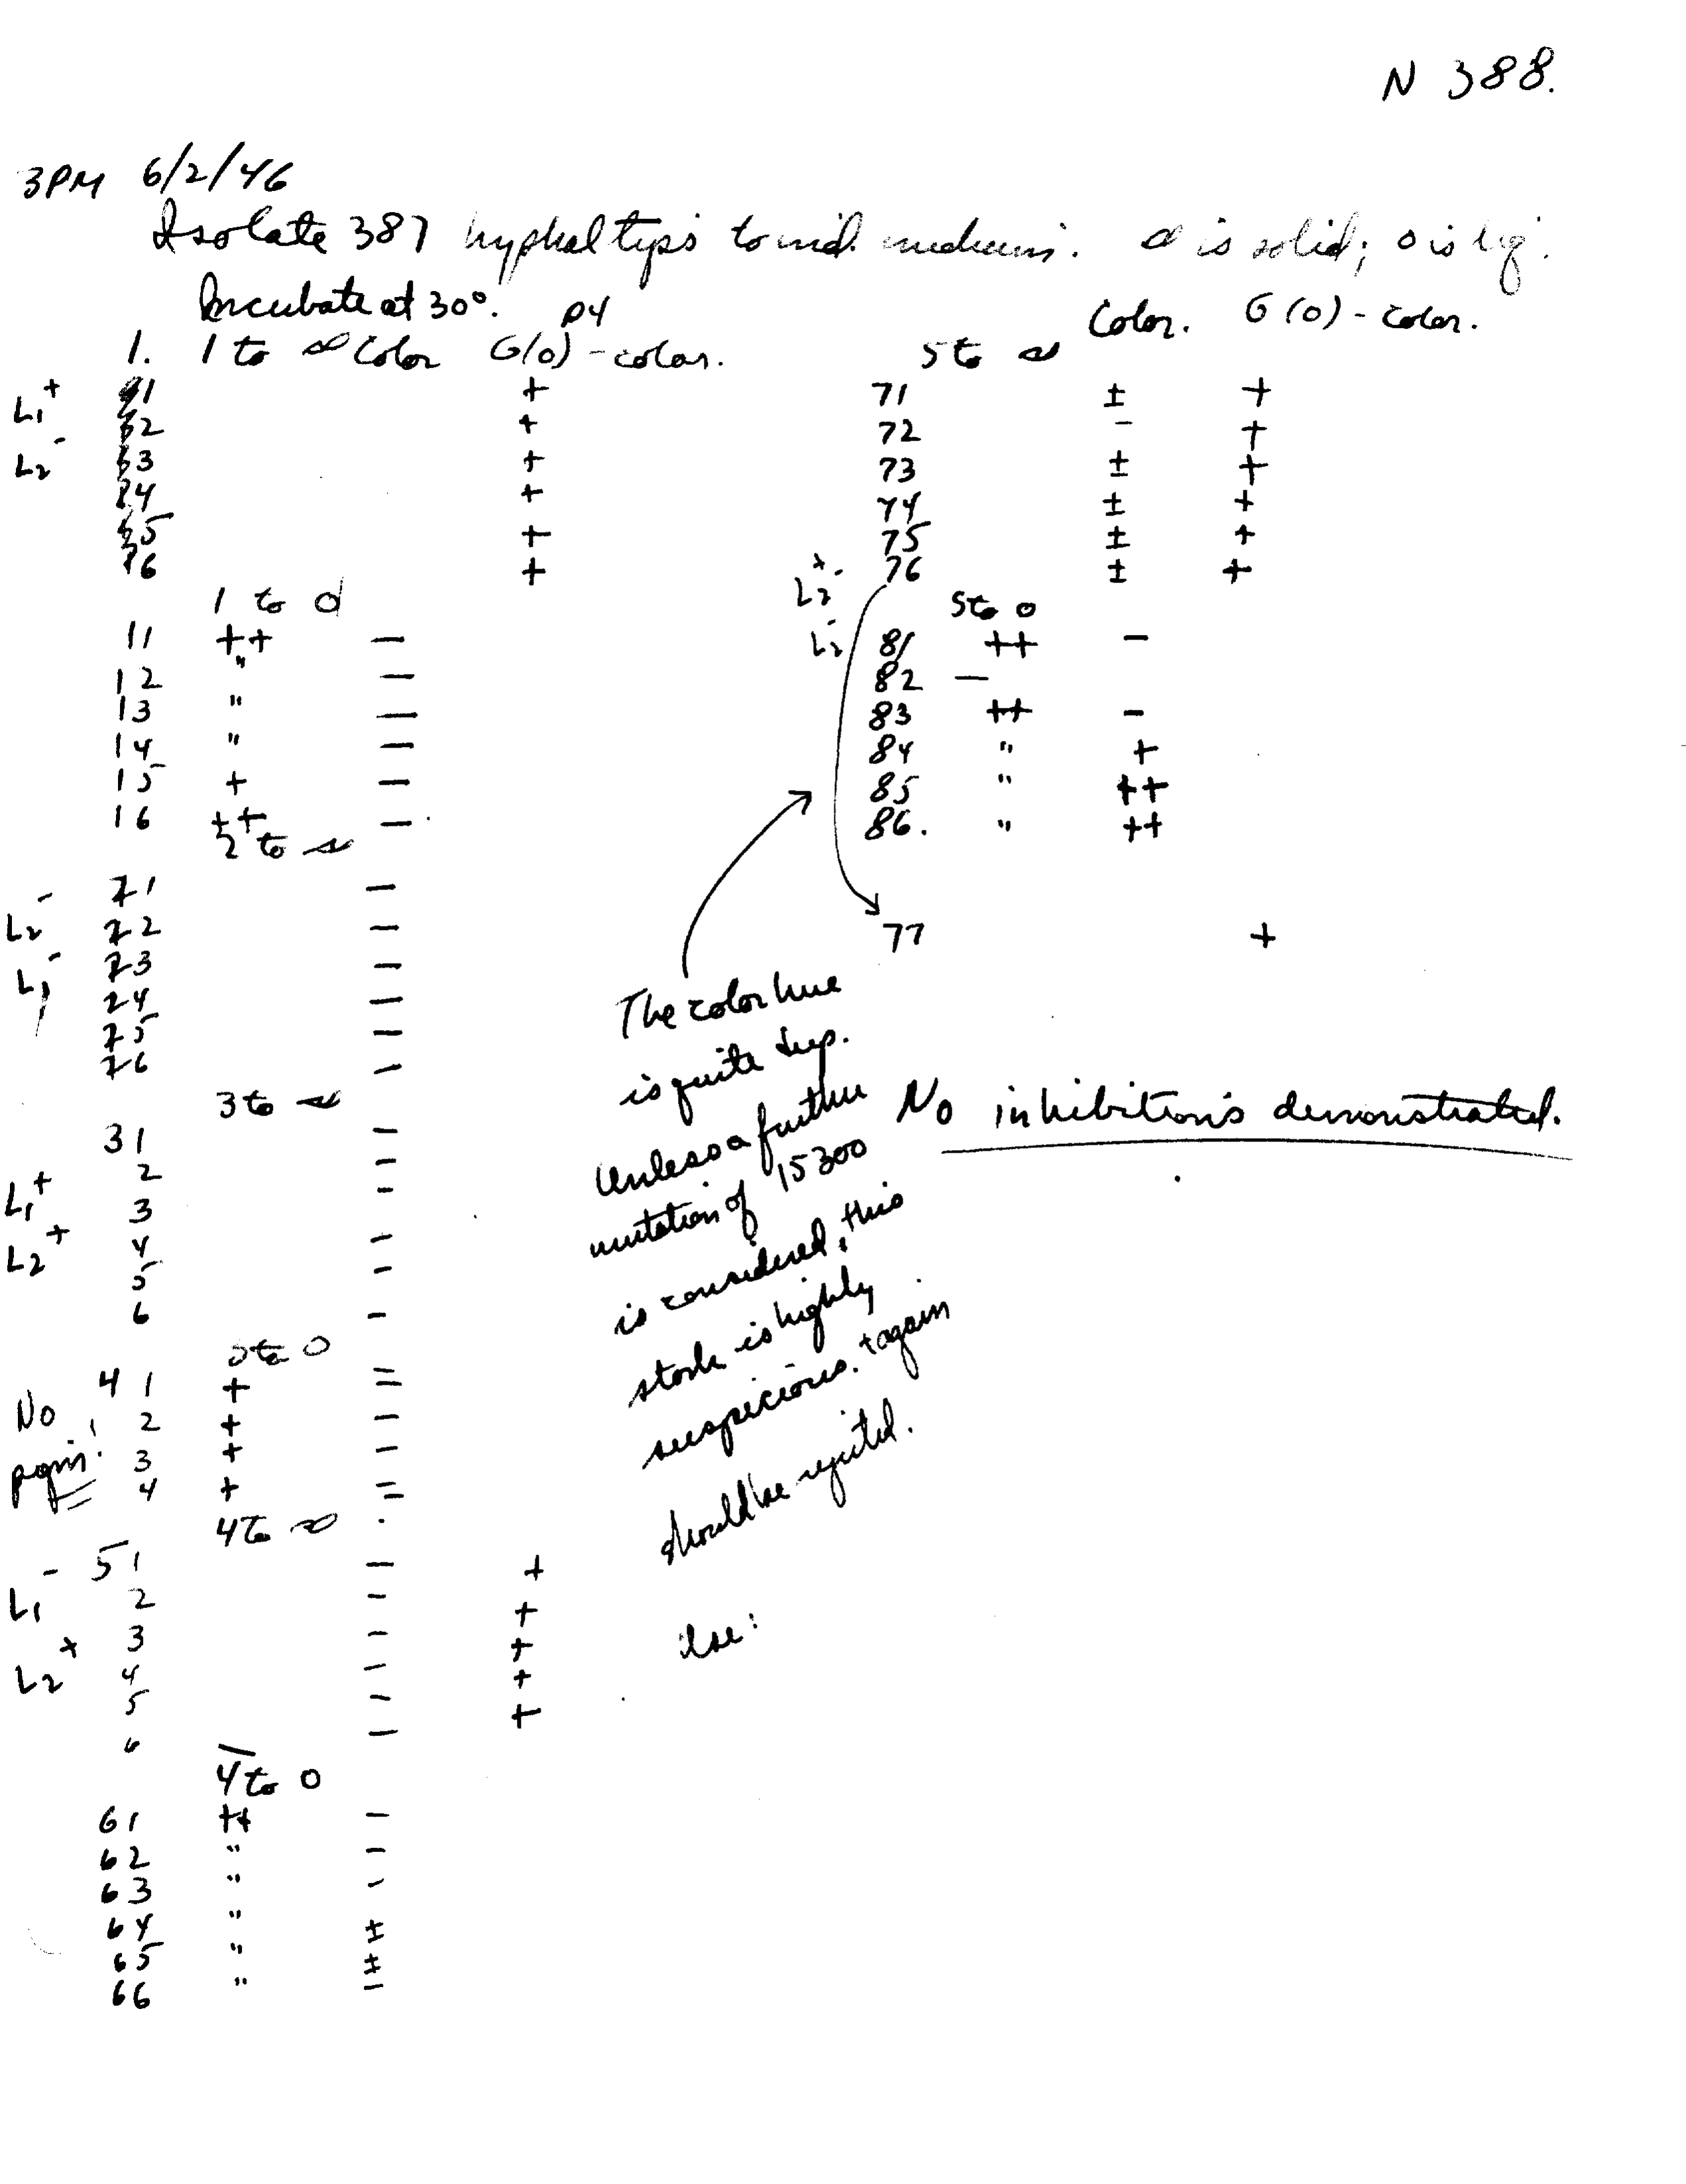 N 388.
3PM 6/2/46
Isolate 387 hyphal tips to ind. medium. s is solid; o is liq.
Incubate at 30°. p4
1. 1 to s Color G(o) - color.
L1+ 1 +
2 +
L2- 3 +
4 +
5 +
6 +
1 to o
11 ++ —
12 " —
13 " —
14 " —
15 + —
16 ++ —
2 to s
21 —
L2- 22 —
L1- 23 —
24 —
25 —
26 —
3 to s
31 —
2 —
L1+ 3 —
L2+ 4 —
5 —
6 —
3 to o
41 + =
No 2 + —
pgm! 3 + —
4 + =
4 to s
51 — +
L1- 2 — +
3 — +
L2+ 4 — +
5 — +
6 —
4 to o
61 ++ -
62 " -
63 " -
64 " ±
65 " ±
66 " -
5 to s Color. G(o) - color.
71 ± +
72 - +
73 ± +
74 ± +
75 ± +
L2 76 ± +
5 to o
L2- 81 ++ -
82 —
83 ++ -
84 " +
85 " ++
86. " ++
77 +
The color hue
is quite deep.
Unless a further
mutation of 15300
is considered, this
stock is highly
suspicious. + again
should be rejected.
Use:
No inhibitions demonstrated.